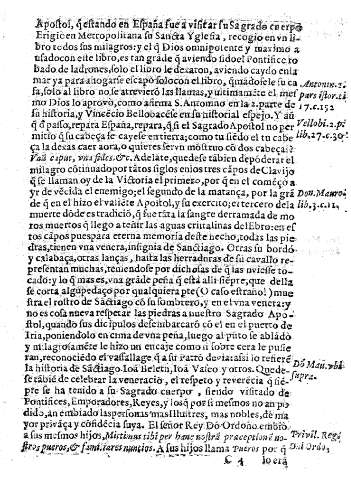 Apostol, q̃ estando en España fue a visitar su Sagrado cuerpo
Erigiò en Metropolitana su Sancta Yglesia, recogio en vn li
bro todos sus milagros: y el q̃ Dios omnipotente y maximo a
usado con este libro, es tan grãde q̃ aviendo sido el Pontifice ro
bado de ladrones, solo el libro le dexaron, aviendo caydo en la
mar ya para ahogarse escapò solo con el libro, quemãdose su ca
sa, solo al libro no se atrevierõ las llamas, y ultimamẽte el mes
mo Dios lo aprovò, como afirma S. Antonino en la 2. parte de
su historia, y Vincẽcio Bellobacẽse en su historial espejo. Y aũ
q̃ de passo, repara España, repara, q̃ si el Sagrado Apostol no per
mitio q̃ su cabeça se cayese entierra; como tu siẽdo el tu cabe
ça la dexas caer aora, o quieres servn mõstruo cõ dos cabeças?
Antonin. 2.
pars istor. ti
17. c. 152
Vellobi. 2. p.
lib. 27. c. 30.
Vna caput, vna fides. &c. Adelãte, quedese tãbien depõderar el
milagro cõtinuado por tãtos siglos en los tres cãpos de Clavijo
q̃ se llaman oy de la Victoria el primero, por q̃ en el comẽço a
yr de vẽcida el enemigo; el segundo de la matança, por la grã
de q̃ en el hizo el valiẽte Apostol, y su exercito; el tercero de la
muerte dõde es tradiciõ, q̃ fue tãta la sangre derramada de mo
ros muertos q̃ llego a teñir las aguas cristalinas del Ebro: en es
tos cãpos pues para eterna memoria deste hecho, todas las pie
dras, tienen vna venera, insignia de Sanctiago. Otras su bordõ
y calabaça, otras lanças, hasta las herraduras de su cavallo re
presentan muchas, teniendose por dichosas de q̃ las uviesse to-
cado: y lo q̃ mas es, vna grãde peña q̃ està allí siẽpre, que della
se corta algupedaço por qualquiera pte (O caso estraño!) mue
stra el rostro de Sãctiago cõ su sombrero, y en el vna venera: y
no es cosa nueva respetar las piedras a nuestro Sagrado Apos-
tol, quando sus dicipulos desembarcarõ cõ el en el puerto de
Iria, poniendolo en cima de vna peña, luego al pũto se ablãdò
y milagrosamẽte le hizo un encaje como si sobre cera le pusie
ran, reconociẽdo el vasallage q̃ a su Patrõ devia: assi lo refiere
la historia de Sãctiago Ioã Beleth, Ioã Vaseo y otros. Quede-
se tãbiẽ de celebrar la veneraciõ, el respeto y reverẽcia q̃ siẽm
pre se ha tenido a su Sagrado cuerpo, siendo visitado de
Pontifices, Emporadores, Reyes, y los q̃ por si mesmos no an po
dido, an embiado las personas mas Ilustres, mas nobles, de ma
yor privãça y confidẽcia suya. El señor Rey Dõ Ordoño embiò
Don. Mauro
lib. 3. c. 12.
Dõ Mau. vbi
supra.
a sus mesmos hijos, Misimus tibi per hanc nostrã praceptionẽ no-
stros pueros, & familiares nuncios. A sus hijos llama Pueros por q̃
Privil. Regi.
Dni Ordo,
C 4 lo era